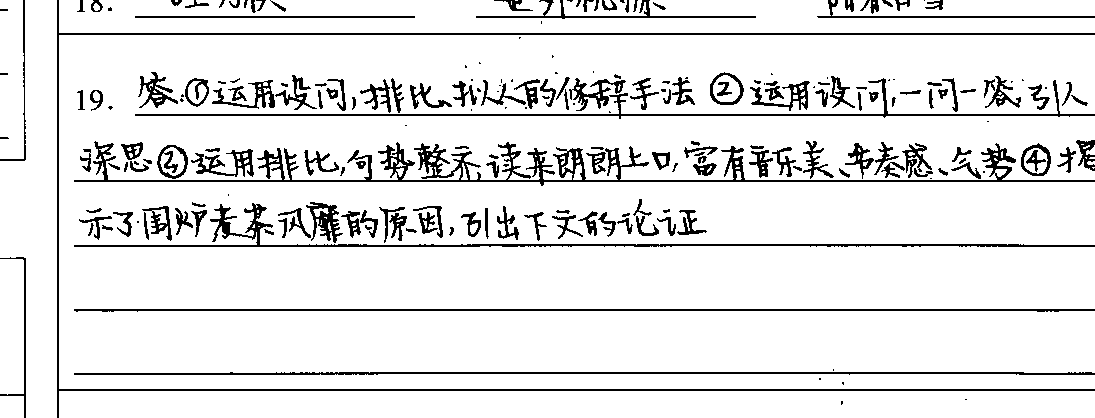 18.
19. 答:①运用设问,排比、拟人的修辞手法 ②运用设问,一问一答,引人
深思③运用排比,句势整齐,读来朗朗上口,富有音乐美、节奏感、气势④揭
示了围炉煮茶风靡的原因,引出下文的论证